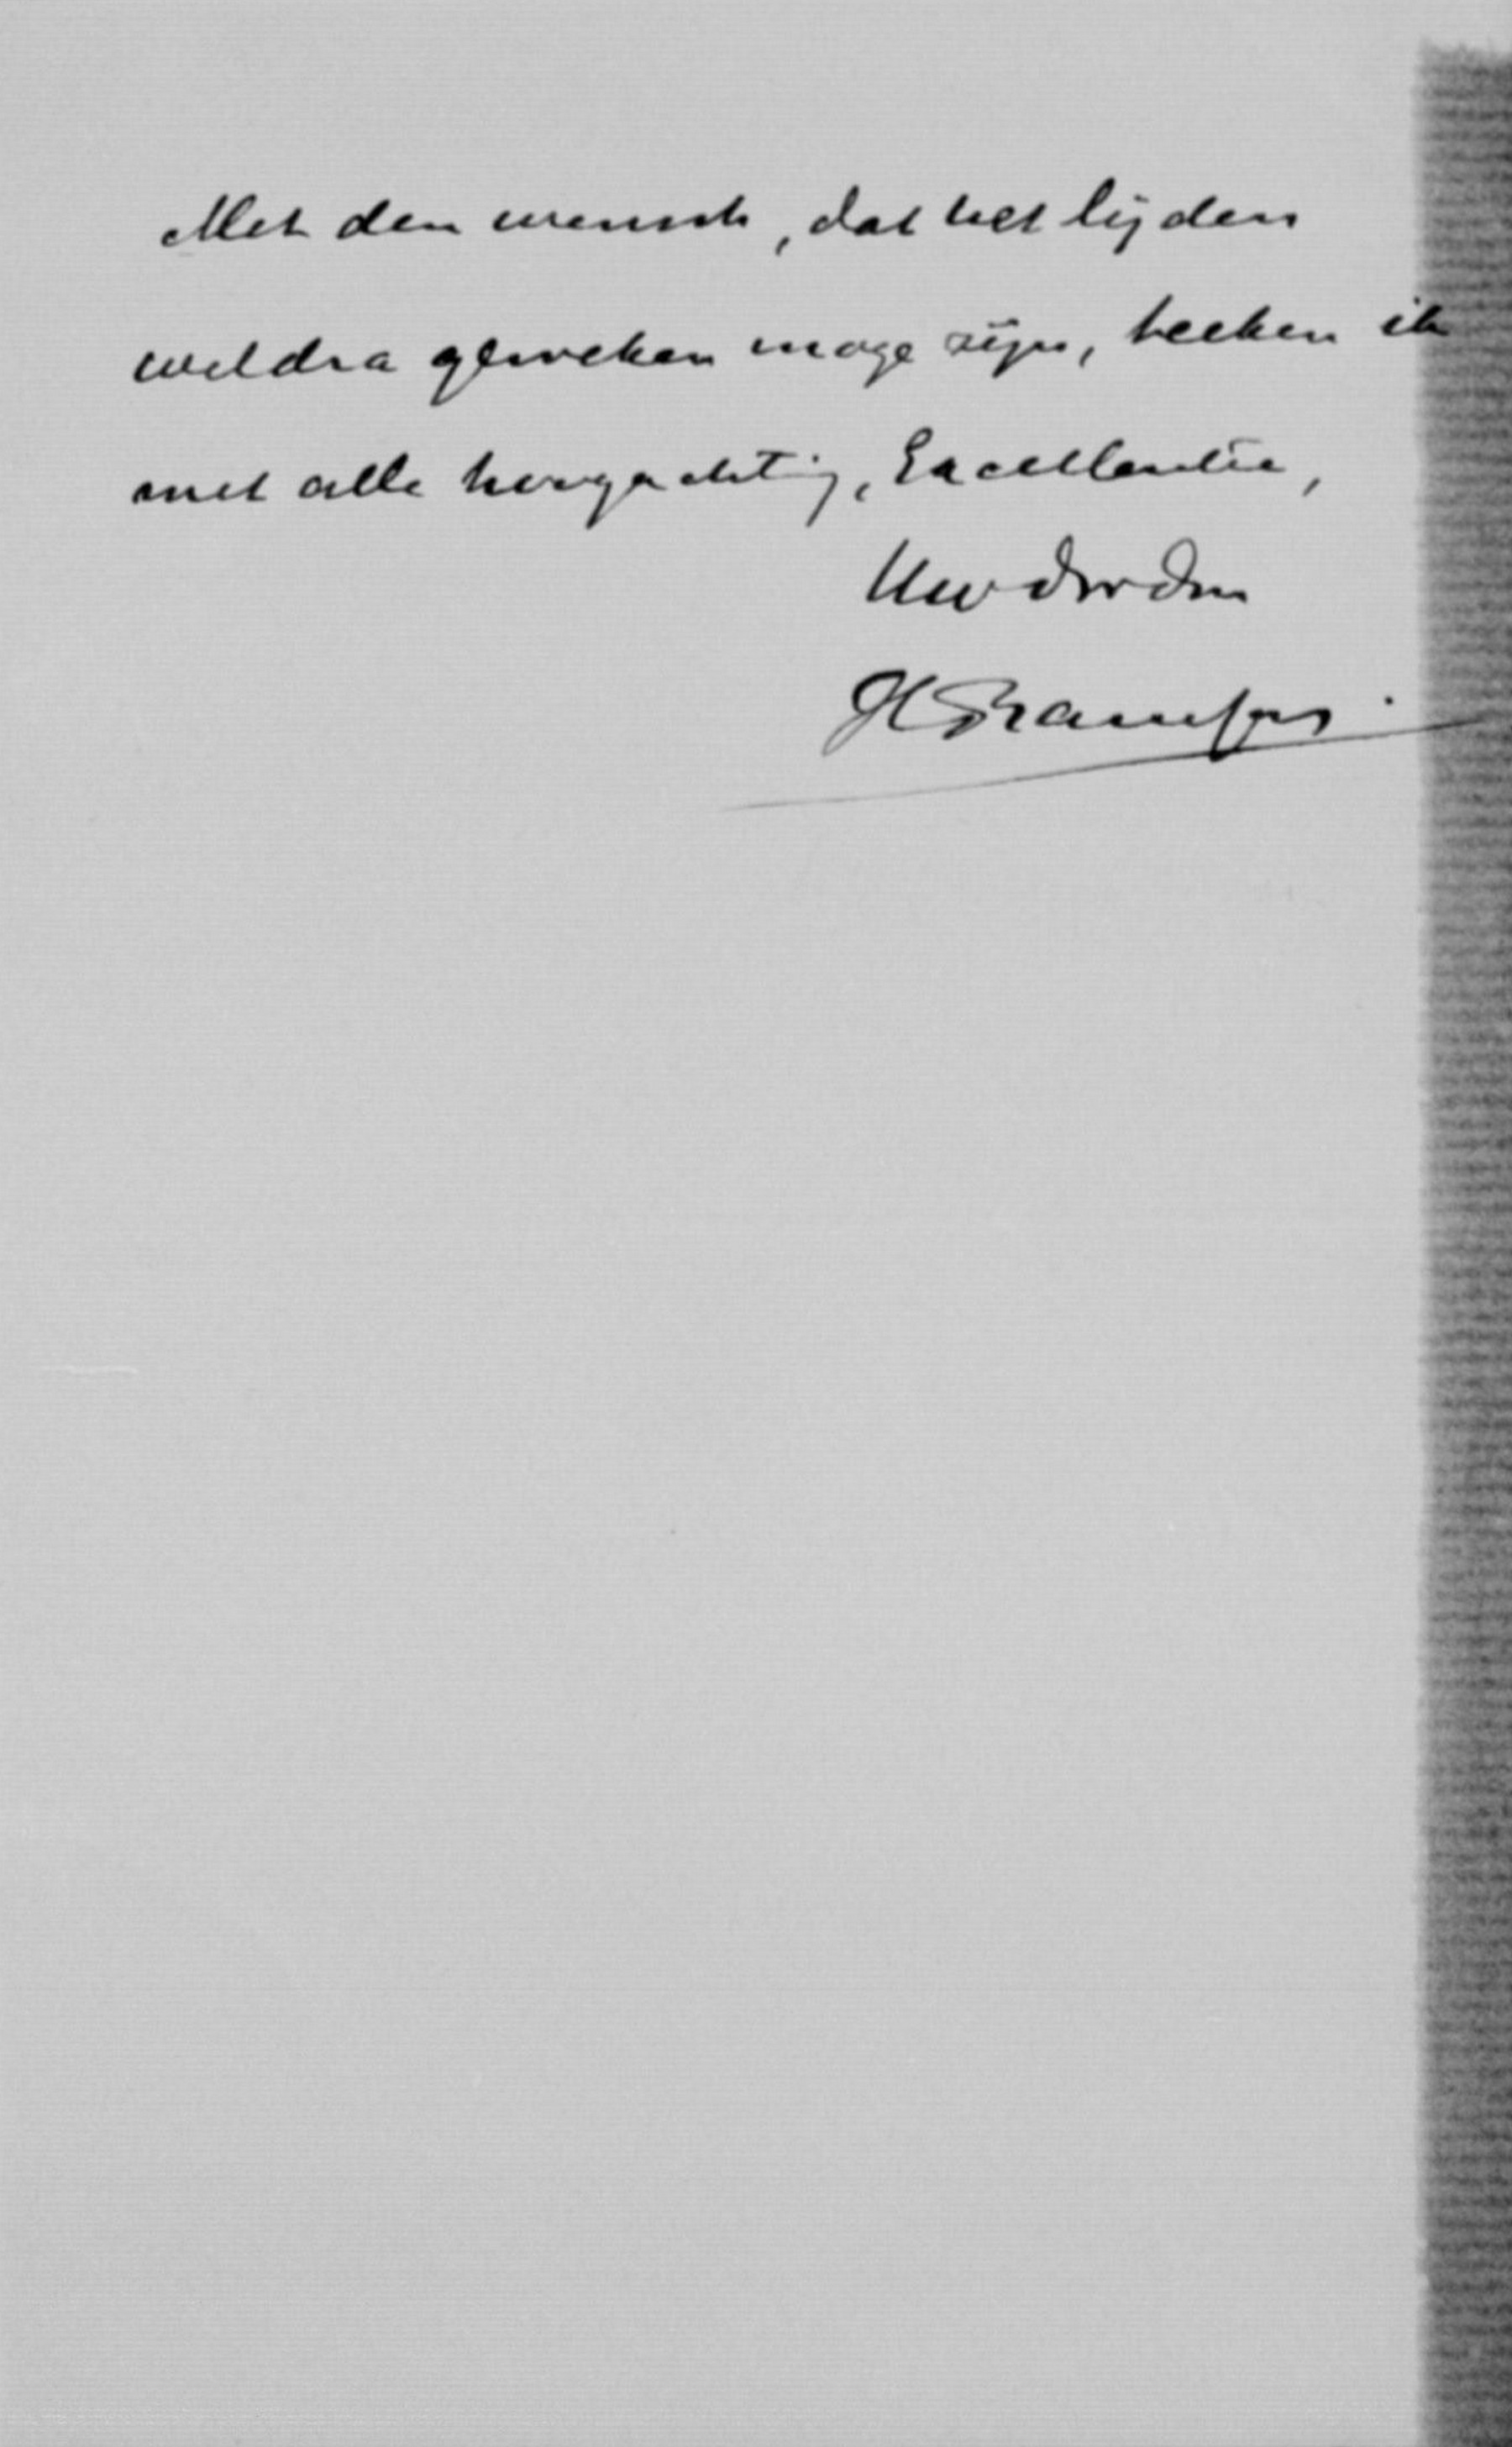 Met den wensch, dat het lijden
weldra geweken moge zijn, teeken ik
met alle hoogachting, Excellentie,
Uw dw dn